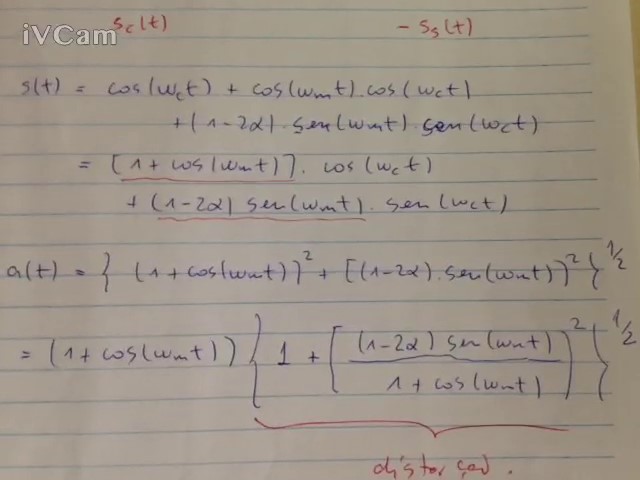 iVCam
s_c(t) - s_s(t)
s(t) = cos(ω_c t) + cos(ω_m t).cos(ω_c t)
+(1-2α).sen(ω_m t).sen(ω_c t)
= [1 + cos(ω_m t)]. cos(ω_c t)
+ (1-2α) sen(ω_m t). sen(ω_c t)
a(t) = { (1+cos(ω_m t))]² + [(1-2α).sen(ω_m t)]² }^1/2
= (1+cos(ω_m t)) { 1 + [ (1-2α) sen(ω_m t) / 1 + cos(ω_m t) ]² }^1/2
distorção.